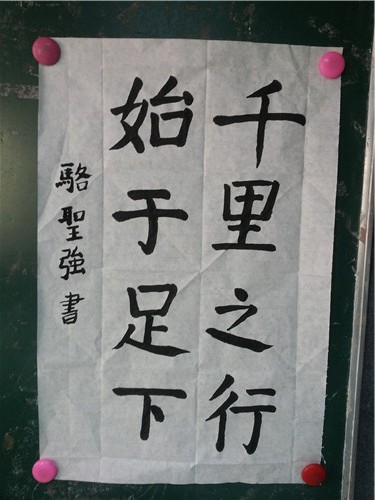 千里之行
始于足下
駱聖強書